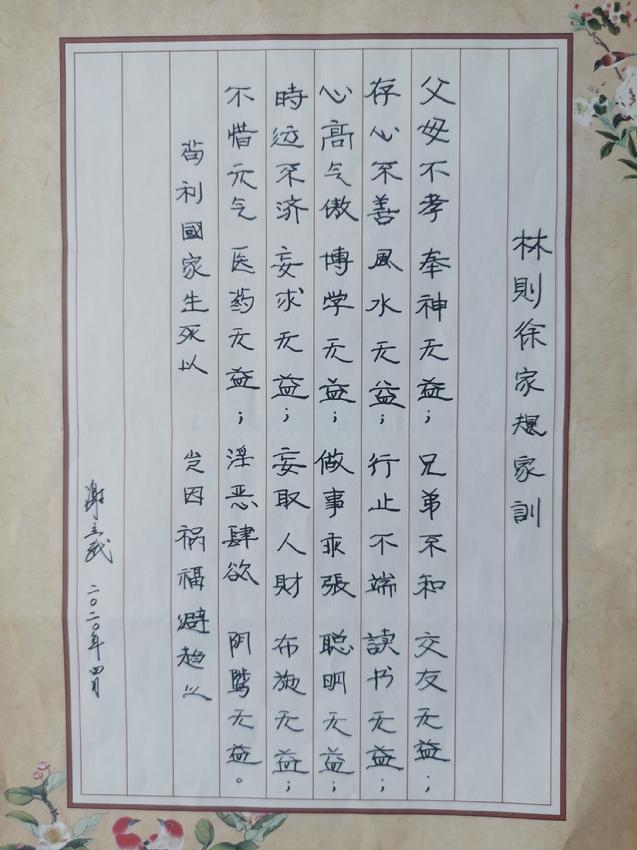 林則徐家規家訓
父母不孝 奉神无益；兄弟不和 交友无益；
存心不善 風水无益；行止不端 読书无益；
心高气傲 博学无益；做事乖張 聪明无益；
時运不济 妄求无益；妄取人財 布施无益；
不惜元气 医药无益；淫恶肆欲 阴骘无益。
苟利國家生死以 岂因祸福避趋之
二〇二〇年四月